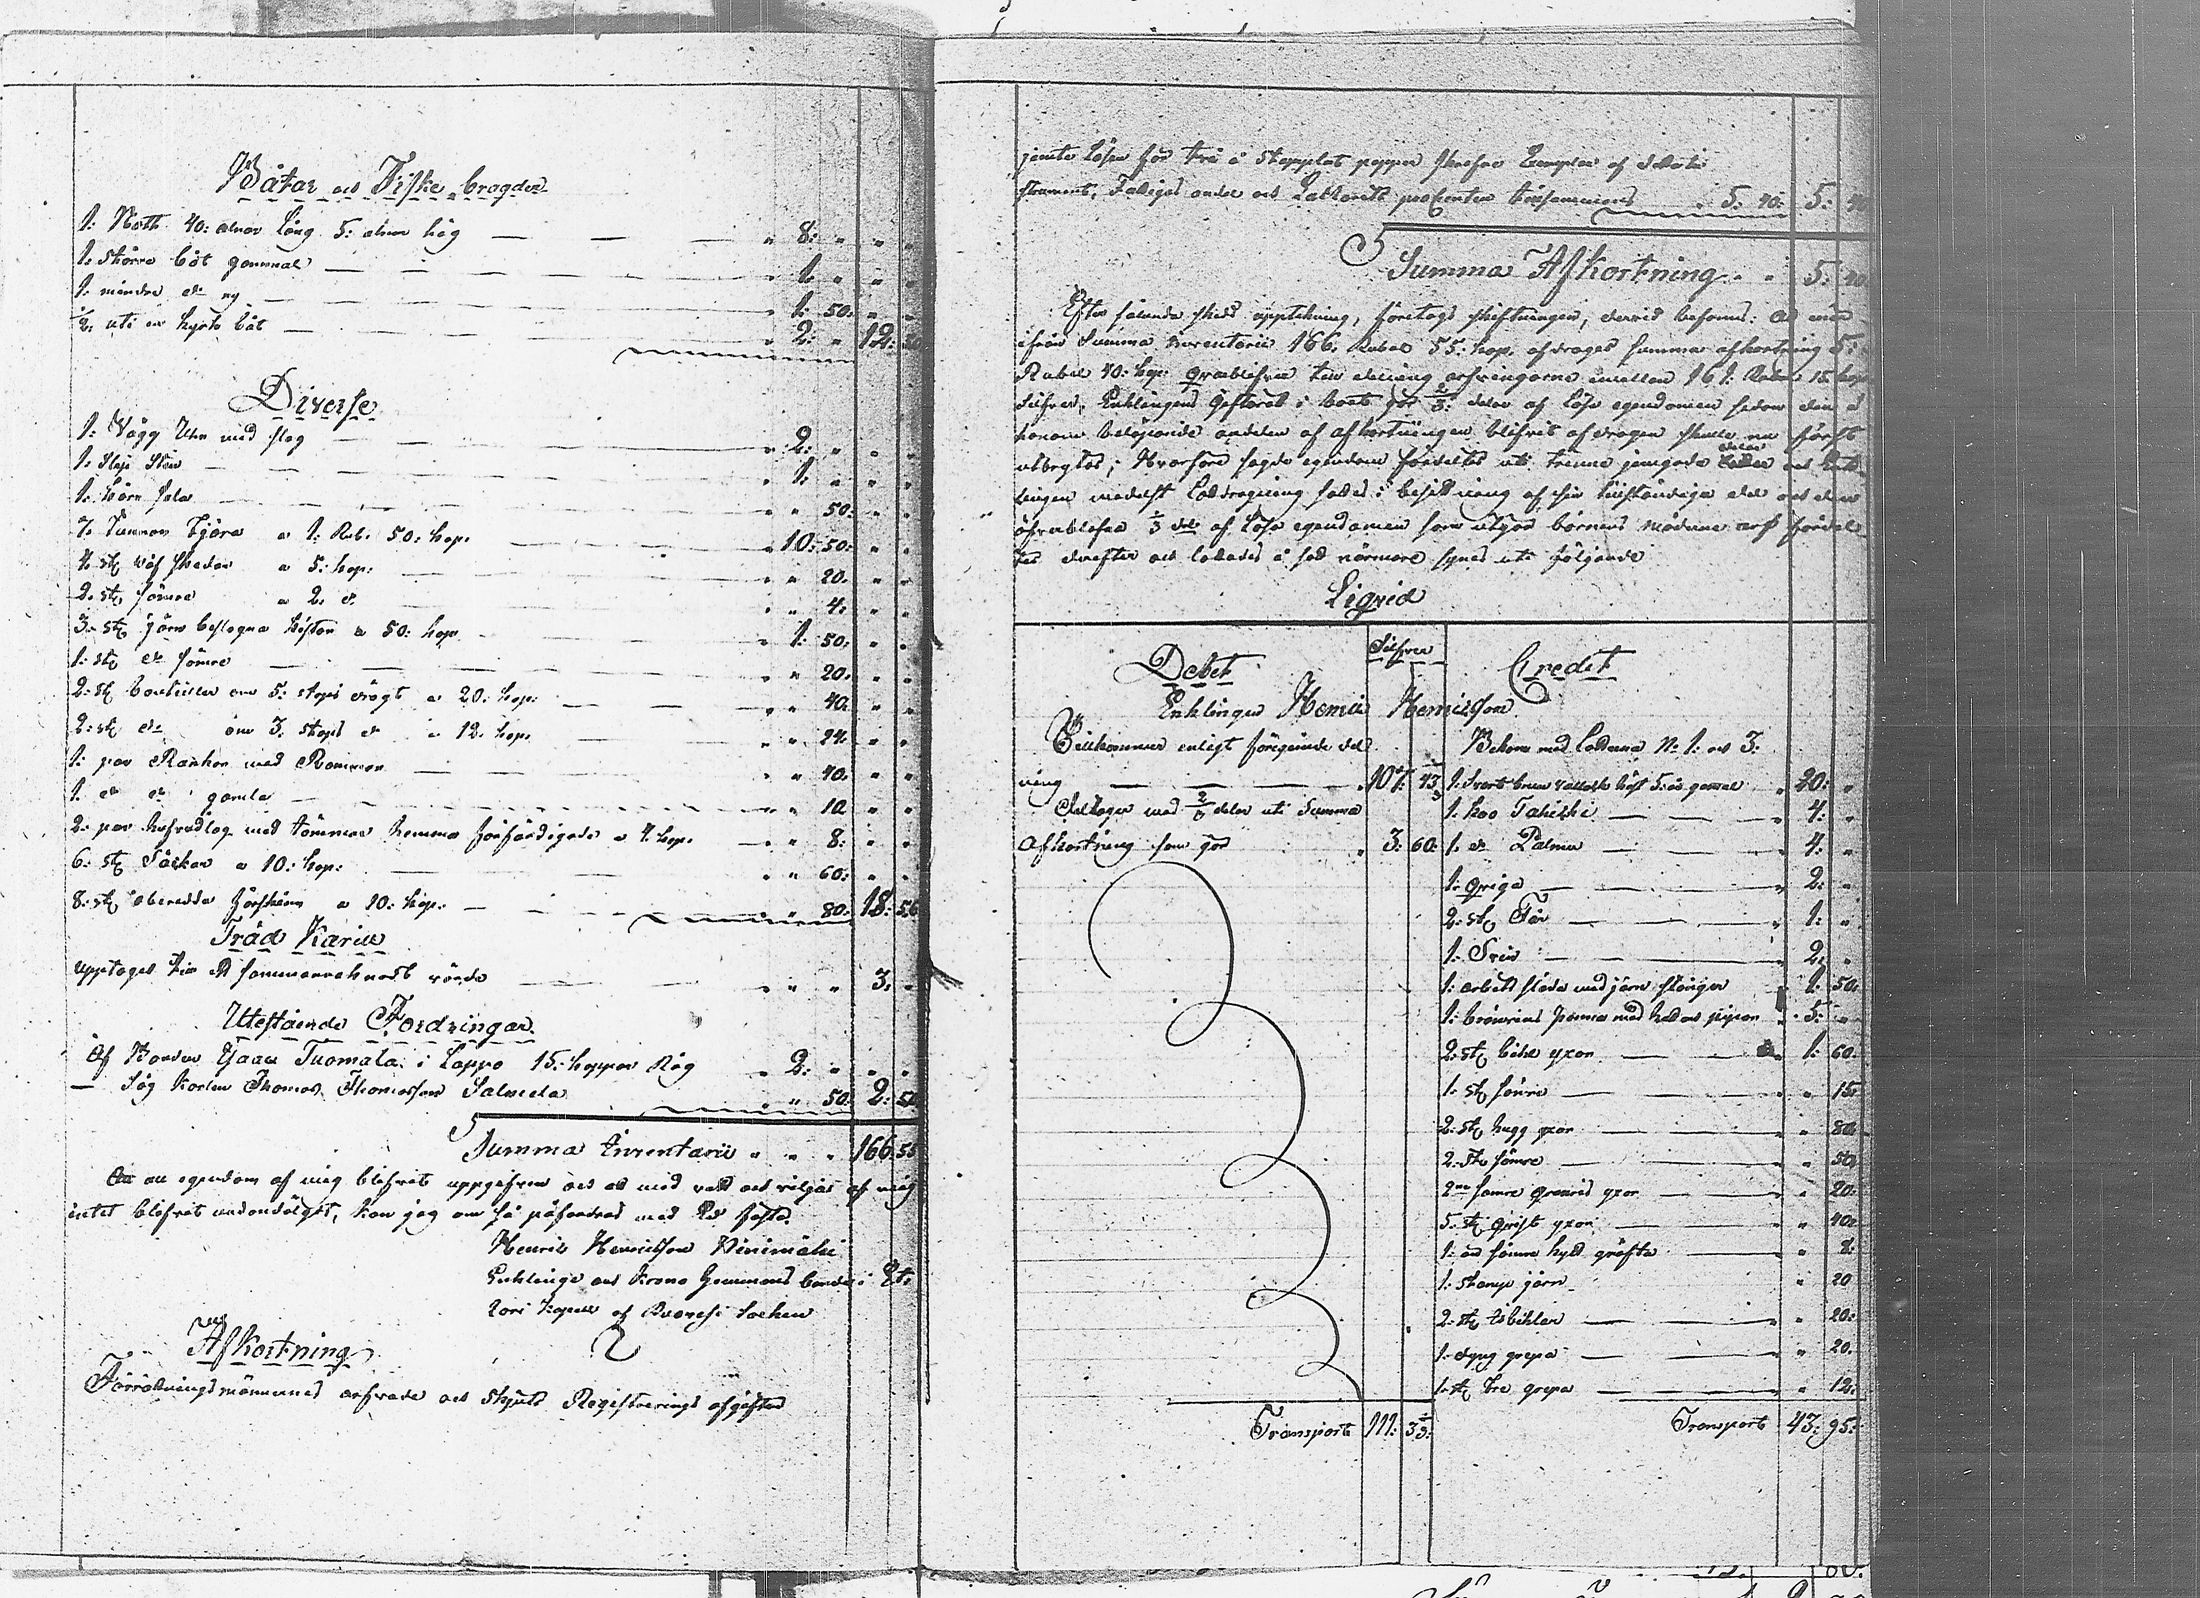 Båtar och Fiske bragder
1: Noth 40: alnar lång 5: alnar hög " 8: " " "
1: större båt gammal " 1: " " "
1: mindre d:o ny " 1: 50: " "
1/2: uti en kyrk båt " 2: " 12: 50
Diverse
1: Vägg Uhr med slag " 2: " " "
1: Slip Sten " 1: " " "
1: " " 50: " "
7: Tunnor tjära a 1: Rub: 50: kop: " 10: 50: " "
4: st väf skedar a 5: kop: " " 20: " "
2: st sämre a 2: d:o " " 4: " "
3: st järn beslagna kistor a 50: kop " 1: 50: " "
1: st d:o sämre " " 20: " "
2: st bouteiller om 5: stops rÿgt a 20: kop: " " 40: " "
2: st d:o om 3: stops d:o a 12: kop: " " 24: " "
1: par Rankor med Remmar " " 40: " "
1: d:o d:o gamla " " 10 " "
2: par med tömmar hemma förfärdigade a 4: kop: " " 8: " "
6: st Säckar a 10: kop: " " 60: " "
8: st oberedda fårskinn a 10: kop: " " 80: 18: 56
Träd Karill
upptages till ett sammanräknadt värde " " " 3: "
Utestående Fordringar
Af Bonden Isaac Tuomala i Lappo 15: kappar Råg " 2: " " "
— Torparen Thomas Thomasson Salmela " " 50: 2: 50
Summa Inventarii " " " 166: 55
att all egendom af mig blifvit uppgifven och att med vett och vilja af mig
intet blifvit undandölgdt, kan jag om så påfordras med Ed fästa.
Henric Henricsson Vinimäki
Enklinge och Krono Hemmans bonde i
kapell af Socken
Afkortning
Förrättningsmännernes arfvode och skjuts Registrerings afgiften
jemte lösen för två å stapplat papper skrefne Exemplar af detta
strument, Fattiges andel och procenten tillsammans " 5: 40: 5: 40
Summa Afkortning " " 5: 40:
Efter sålunda skedd uppteckning, företogs skiftningen, dervid befanns: att när
ifrån Summa Inventarii 166: Rubel 55: kop: afdrages summa afkortning 5:
Rubel 40: kop: qvarblifver till delning arfvingarne emellan 161: Rubel 15: kop
Silfver, Enklingens Giftorätt i boets gör 2/3: delar af lösa egendomen sedan den å
honom belöpande andelen af afkortningen blifvit afdragen skulle nu först
utbrytas; Hvarföre sagde egendom fördeltes uti trenne jemngoda delar och Enk-
lingen medelst lottdragning sattes i besittning af sin tillständiga del och den
öfverblefna 1/3 del af lösa egendomen som utgör barnens möderne arf fördel-
tes derefter och lottades å sätt närmare synes uti följande
Liqvid
Debet Silfver Credit
Enklingen Henric Henricsson
Tillkommer enligt föregående del Bekom med Lotterna N: 1: och 3:
ning 107: 43 1/3 1: Svart brun vallack häst 5: år gammal " 20: "
Deltager med 2/3 delar uti Summa 1: koo Tähikki " 4: "
Afkortning som gör " 3: 60: 1: d:o Palmu " 4: "
1: qviga " 2: "
2: st Får " 1: "
1: Svin " 2: "
1: arbets släde med järn stänger " 1: 50:
1: bränvins panna med hatt och pipor " 5: "
2: st bile yxor " 1: 60:
1: st sämre " " 15:
2: st hugg yxor " " 80:
2: st sämre " " 50:
2:ne sämre qvarnis yxor " " 20:
5: st qvist yxor " " 40:
1: än sämre " " 2:
1: stamp järn " 20
2: st isbillar " " 20:
1: dyng grepa " " 20:
1: st trä grepa " " 12:
Transport 111: 3 1/3: Transport 43: 95: